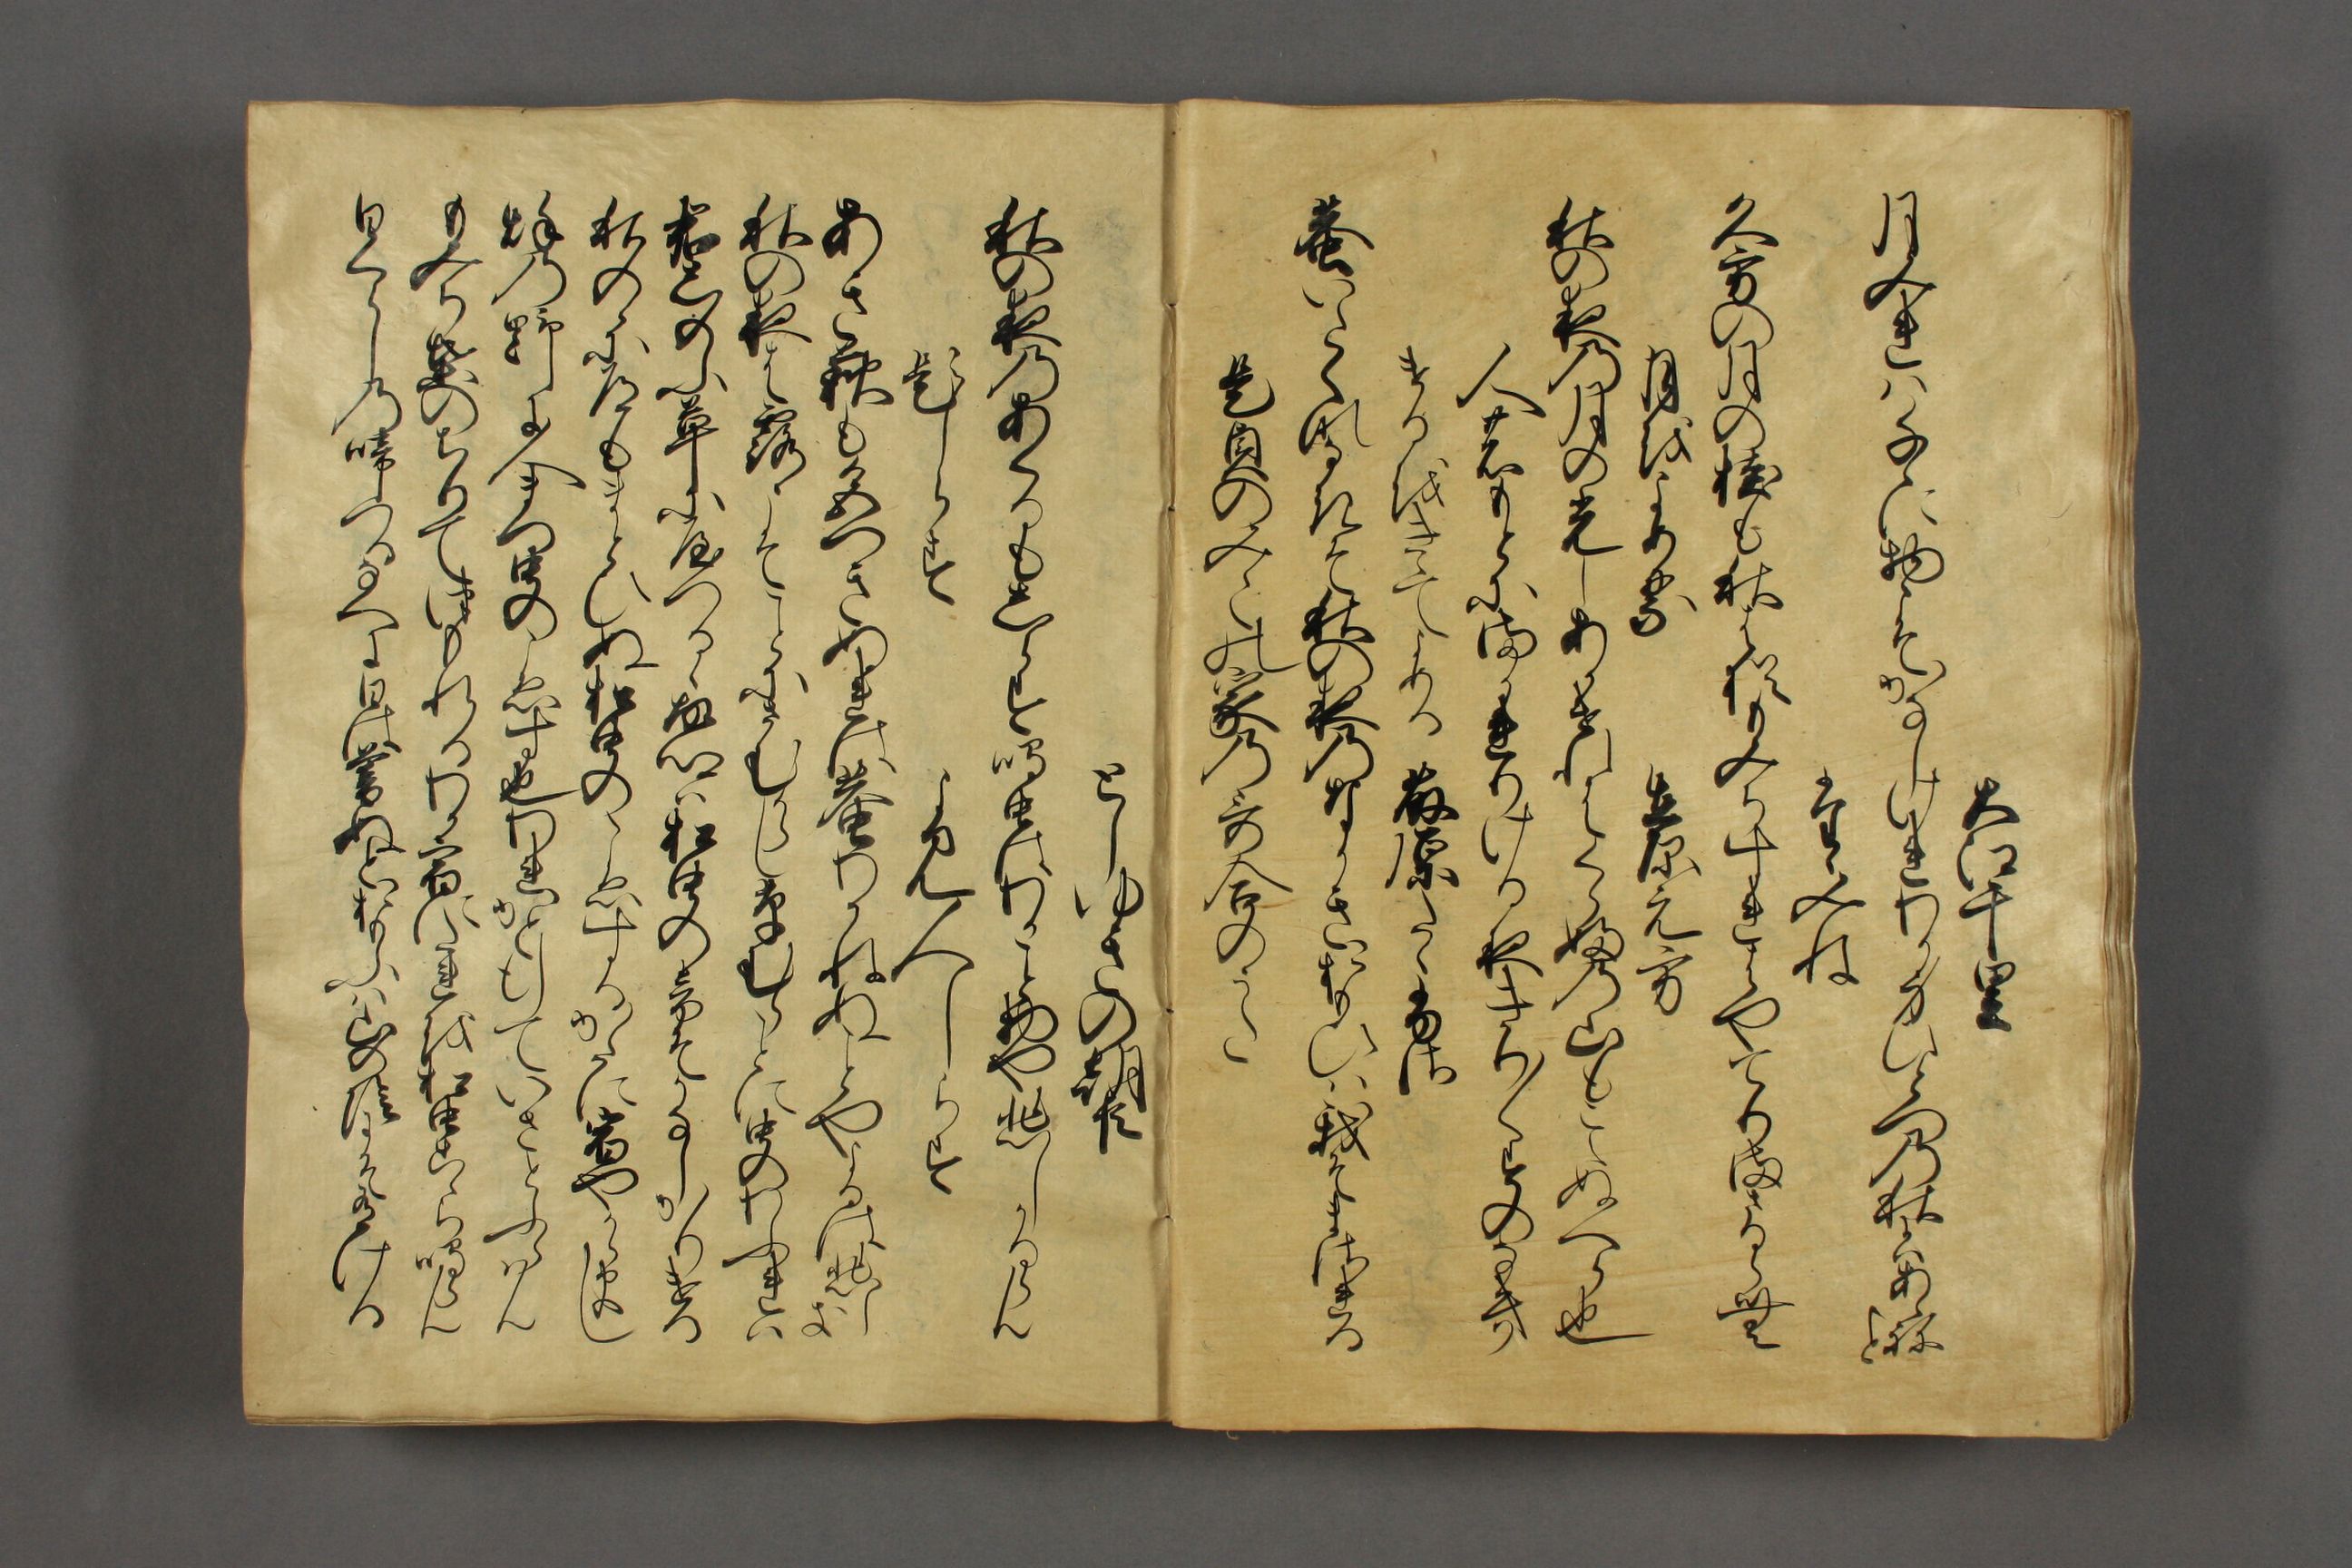 大江千里
月みれはちゝに物こそかなしけれわか身ひとつの秋にはあらねと
たゝみね
久方の月の桂も秋は猶もみちすれはやてりまさるらむ
月をよめる　在原元方
秋の夜の月の光しあかけれはくらふの山もこえぬへら也
人のもとにまかれりける夜きり〳〵すのなき
けるをきゝてよめる　藤原たゝふさ
蛬いたくななきそ秋の夜のなかき思ひは我そまされる
是貞のみこの家の哥合のうた
としゆきの朝臣
秋の夜のあくるもしらす鳴虫はわかこと物や悲しかるらん
題しらす　よみ人しらす
あき萩も色つきぬれは蛬わかねぬことやよるは悲しき
秋の夜は露こそことにさむからし草むらことに虫のわふれは
君しのふ草にやつるゝ故郷は松虫の音そかなしかりける
秋のゝに道もまとひぬ松虫のこゑするかたに宿やからまし
秌の野に人まつ虫のこゑす也われかとゆきていさとふらはん
もみち葉のちりてつもれるわか宿に誰を松虫こゝら鳴らん
日くらしの啼つるなへに日は暮ぬと思ふは山の陰にそ有ける